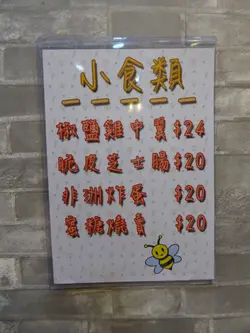 小食類
椒鹽雞中翼 $24
脆皮芝士腸 $20
非洲炸蛋 $20
蜜糖燒賣 $20